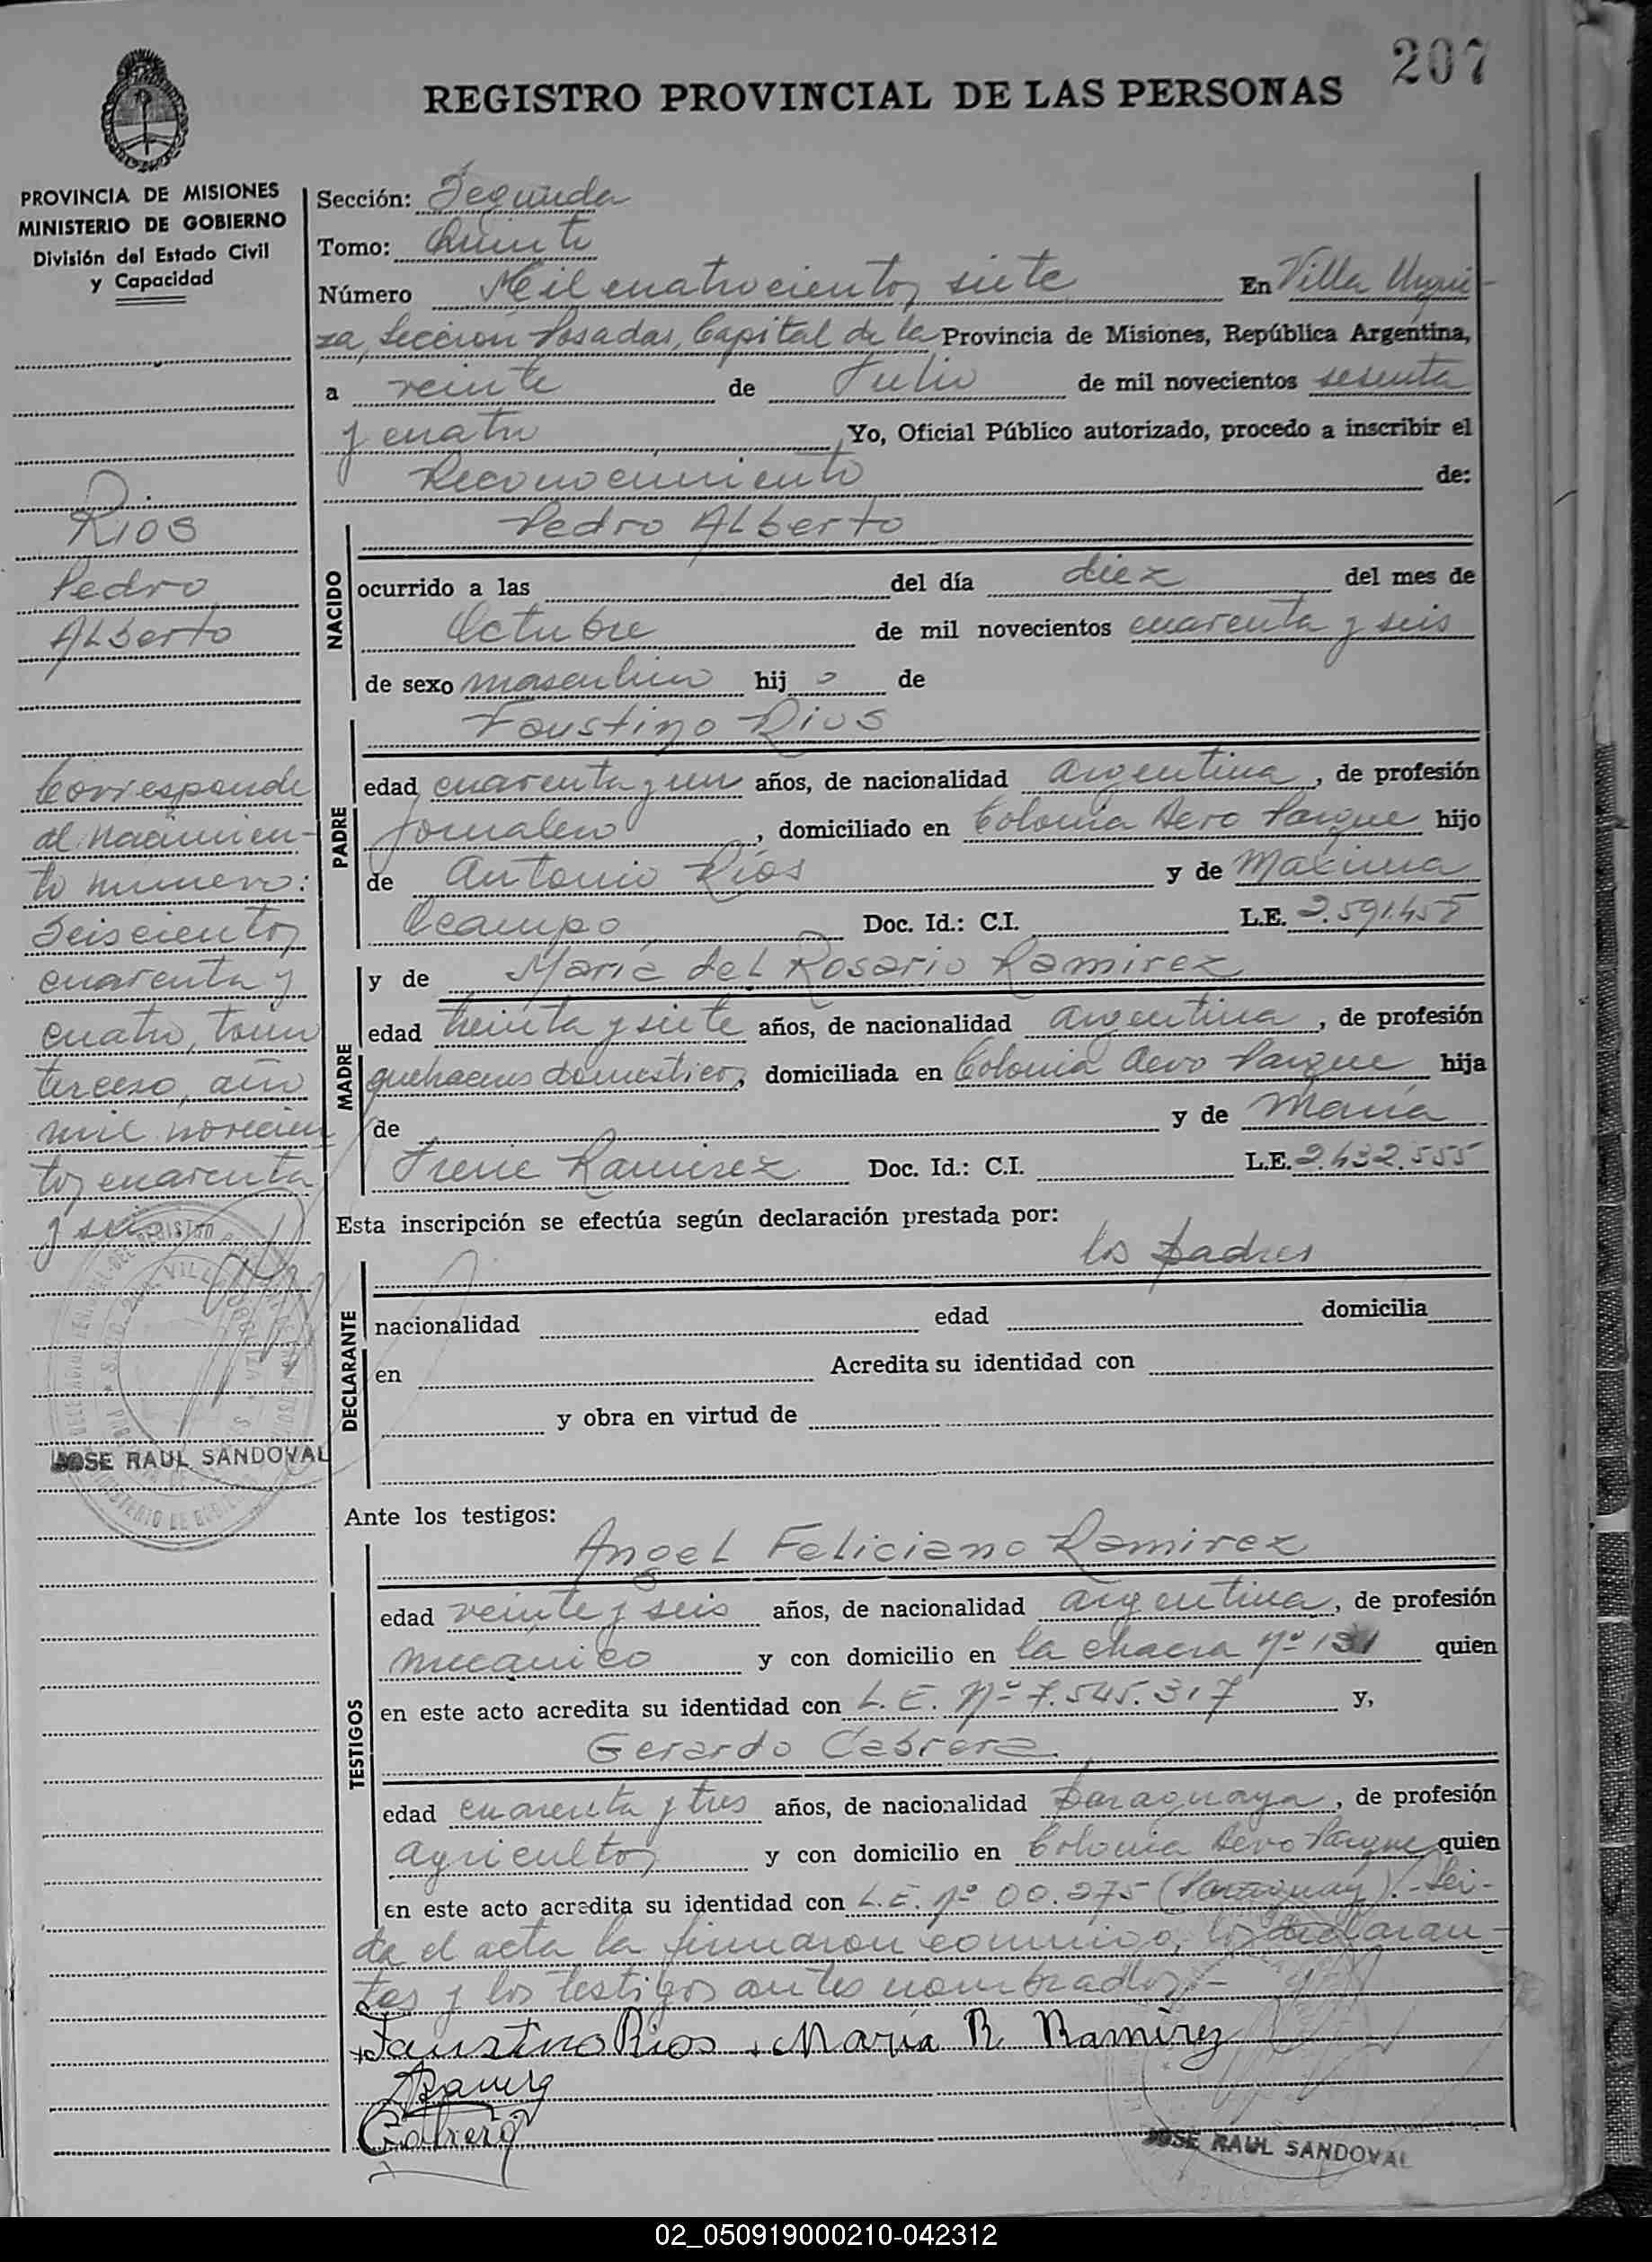 207
REGISTRO PROVINCIAL DE LAS PERSONAS
PROVINCIA DE MISIONES
MINISTERIO DE GOBIERNO
División del Estado Civil
y Capacidad
Rios
Pedro
Alberto
Corresponde
al nacimien-
to número:
Seiscientos
cuarenta y
cuatro, tomo
tercero, año
mil novecien
tos cuarenta
y seis
JOSE RAUL SANDOVAL
Sección: Segunda
Tomo: Quinto
Número Mil cuatrocientos siete En Villa Urqui-
za, Sección Posadas, Capital de la Provincia de Misiones, República Argentina,
a veinte de Julio de mil novecientos sesenta
y cuatro Yo, Oficial Público autorizado, procedo a inscribir el
Reconocimiento de:
Pedro Alberto
NACIDO
ocurrido a las del día diez del mes de
Octubre de mil novecientos cuarenta y seis
de sexo masculino hij o de
Faustino Rios
PADRE
edad cuarenta y un años, de nacionalidad argentina, de profesión
jornalero, domiciliado en Colonia Aero Parque hijo
de Antonio Ríos y de Maxima
Ocampo Doc. Id.: C.I. L.E. 2.591.455
y de María del Rosario Ramirez
MADRE
edad treinta y siete años, de nacionalidad argentina, de profesión
quehaceres domesticos, domiciliada en Colonia Aero Parque hija
de y de María
Irene Ramirez Doc. Id.: C.I. L.E. 2.432.555
Esta inscripción se efectúa según declaración prestada por:
los padres
DECLARANTE
nacionalidad edad domicilia
en Acredita su identidad con
y obra en virtud de
Ante los testigos:
Angel Feliciano Ramirez
TESTIGOS
edad veinte y seis años, de nacionalidad argentina, de profesión
mecánico y con domicilio en la chacra nº 131 quien
en este acto acredita su identidad con L.E. Nº 7.545.317 y,
Gerardo Cabrera
edad cuarenta y tres años, de nacionalidad paraguaya, de profesión
agricultor y con domicilio en Colonia Aero Parque quien
en este acto acredita su identidad con L.E. nº 00.275 (Paraguay).- Leí-
da el acta la firmaron conmigo, los declaran-
tes y los testigos antes nombrados.-
Faustino Rios María R Ramirez
Ramirez
Cabrera
JOSE RAUL SANDOVAL
02_050919000210-042312